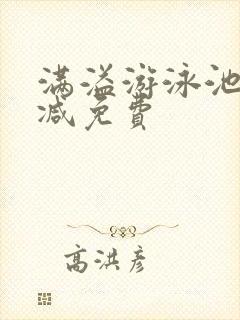 满溢游泳池
减免费
高洪彦